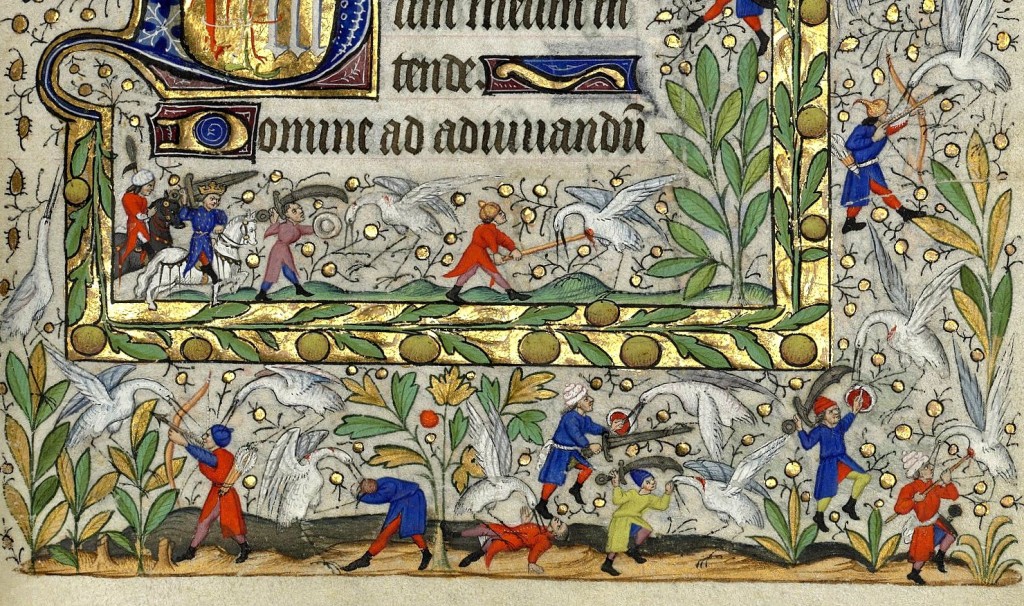 ium meum in
tende
Domine ad adiuuandū